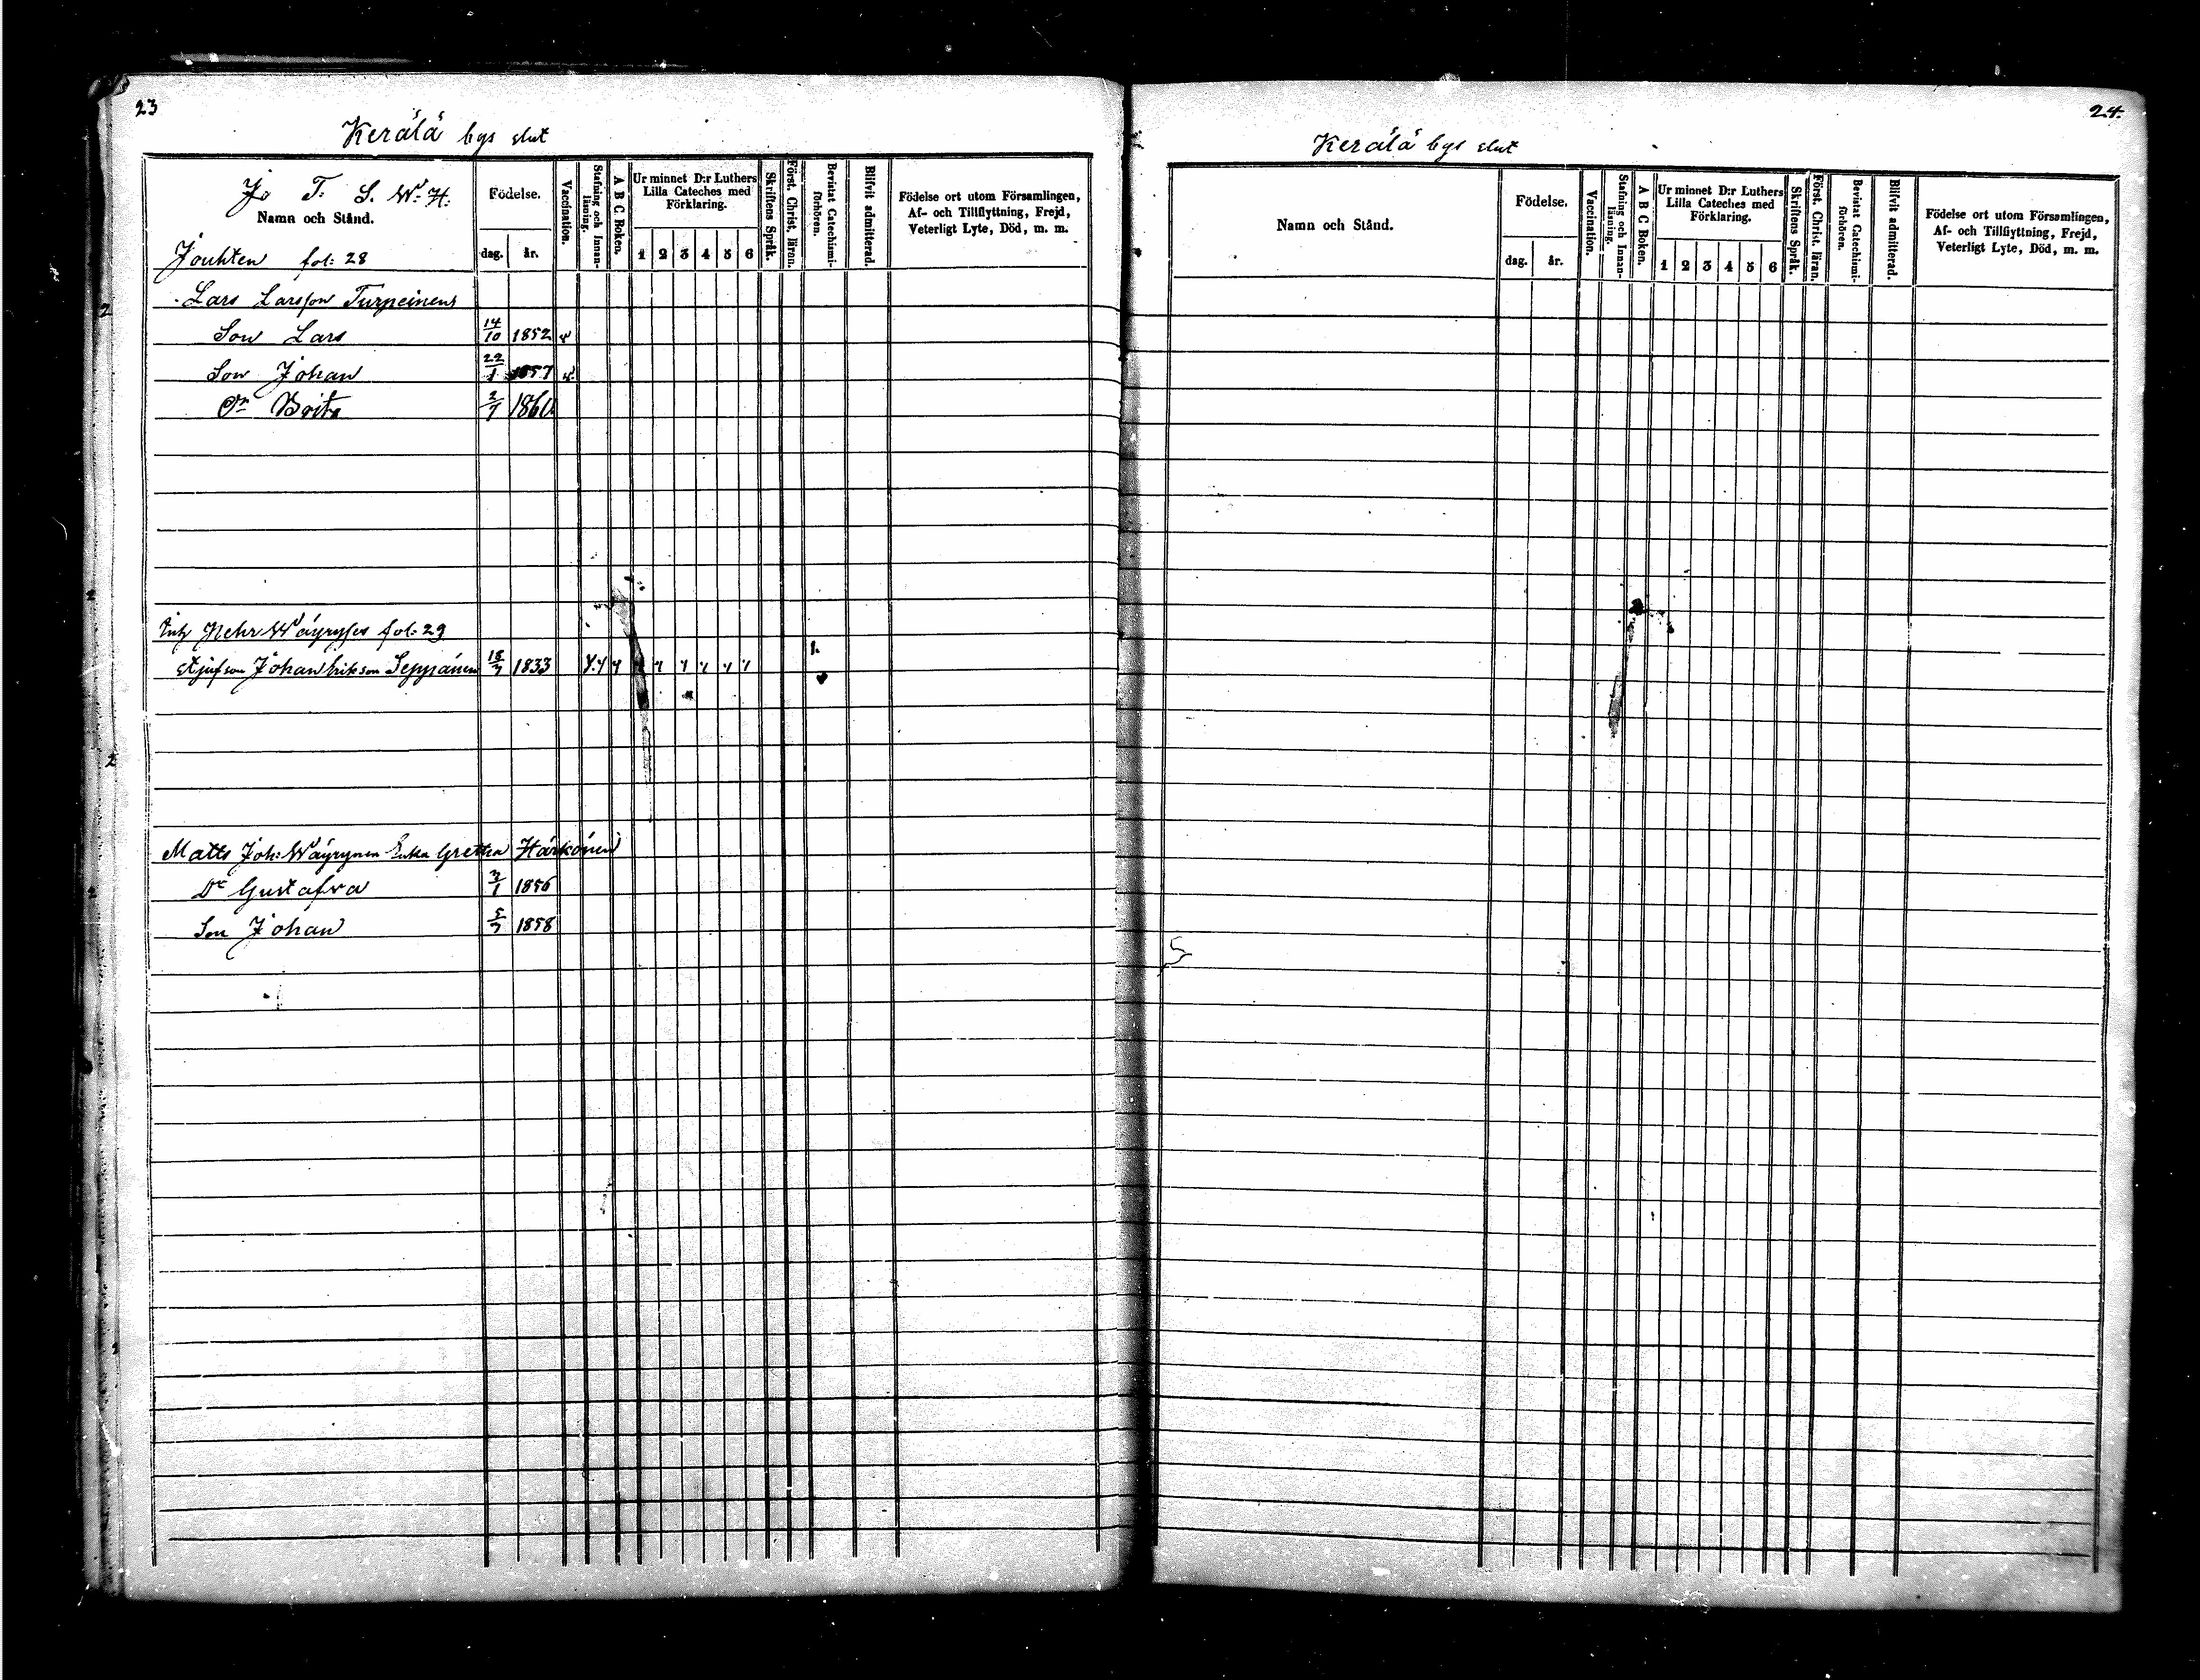 23
Kerälä bys slut
Jo T. S. W. H.
Namn och Stånd.
Födelse.
dag. år.
Vaccination.
Stafning och Innanläsning.
A B C Boken.
Ur minnet D:r Luthers Lilla Cateches med Förklaring.
1 2 3 4 5 6
Skriftens Språk.
Först. Christ. läran.
Bevistat Catechismiförhören.
Blifvit admitterad.
Födelse ort utom Församlingen, Af- och Tillflyttning, Frejd, Veterligt Lyte, Död, m. m.
Jouhten fol: 28
Lars Larsson Turpeinens
Son Lars 14/10 1852 v
Son Johan 22/1 1857 v
Dr Brita 2/7
fol: 29
Johan Erikson Seppänen 18/7 1833
Matts Joh: Wäyrynen Greta Härkönen
Dr Gustafva 3/1 1856
Son Johan 5/7 1858
24.
Kerälä bys slut
Namn och Stånd.
Födelse.
dag. år.
Vaccination.
Stafning och Innanläsning.
A B C Boken.
Ur minnet D:r Luthers Lilla Cateches med Förklaring.
1 2 3 4 5 6
Skriftens Språk.
Först. Christ. läran.
Bevistat Catechismiförhören.
Blifvit admitterad.
Födelse ort utom Församlingen, Af- och Tillflyttning, Frejd, Veterligt Lyte, Död, m. m.